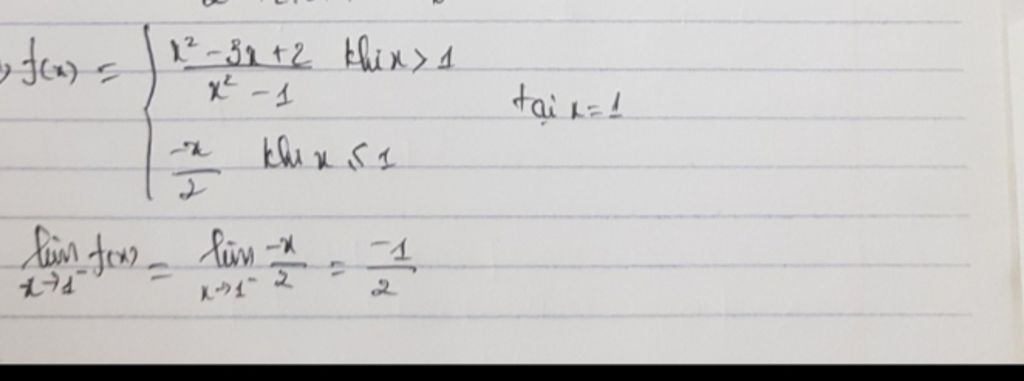 f(x) = { x² - 3x + 2 / x² - 1 khi x > 1
tại x = 1
-x / 2 khi x ≤ 1
lim x→1⁻ f(x) = lim x→1⁻ -x / 2 = -1 / 2